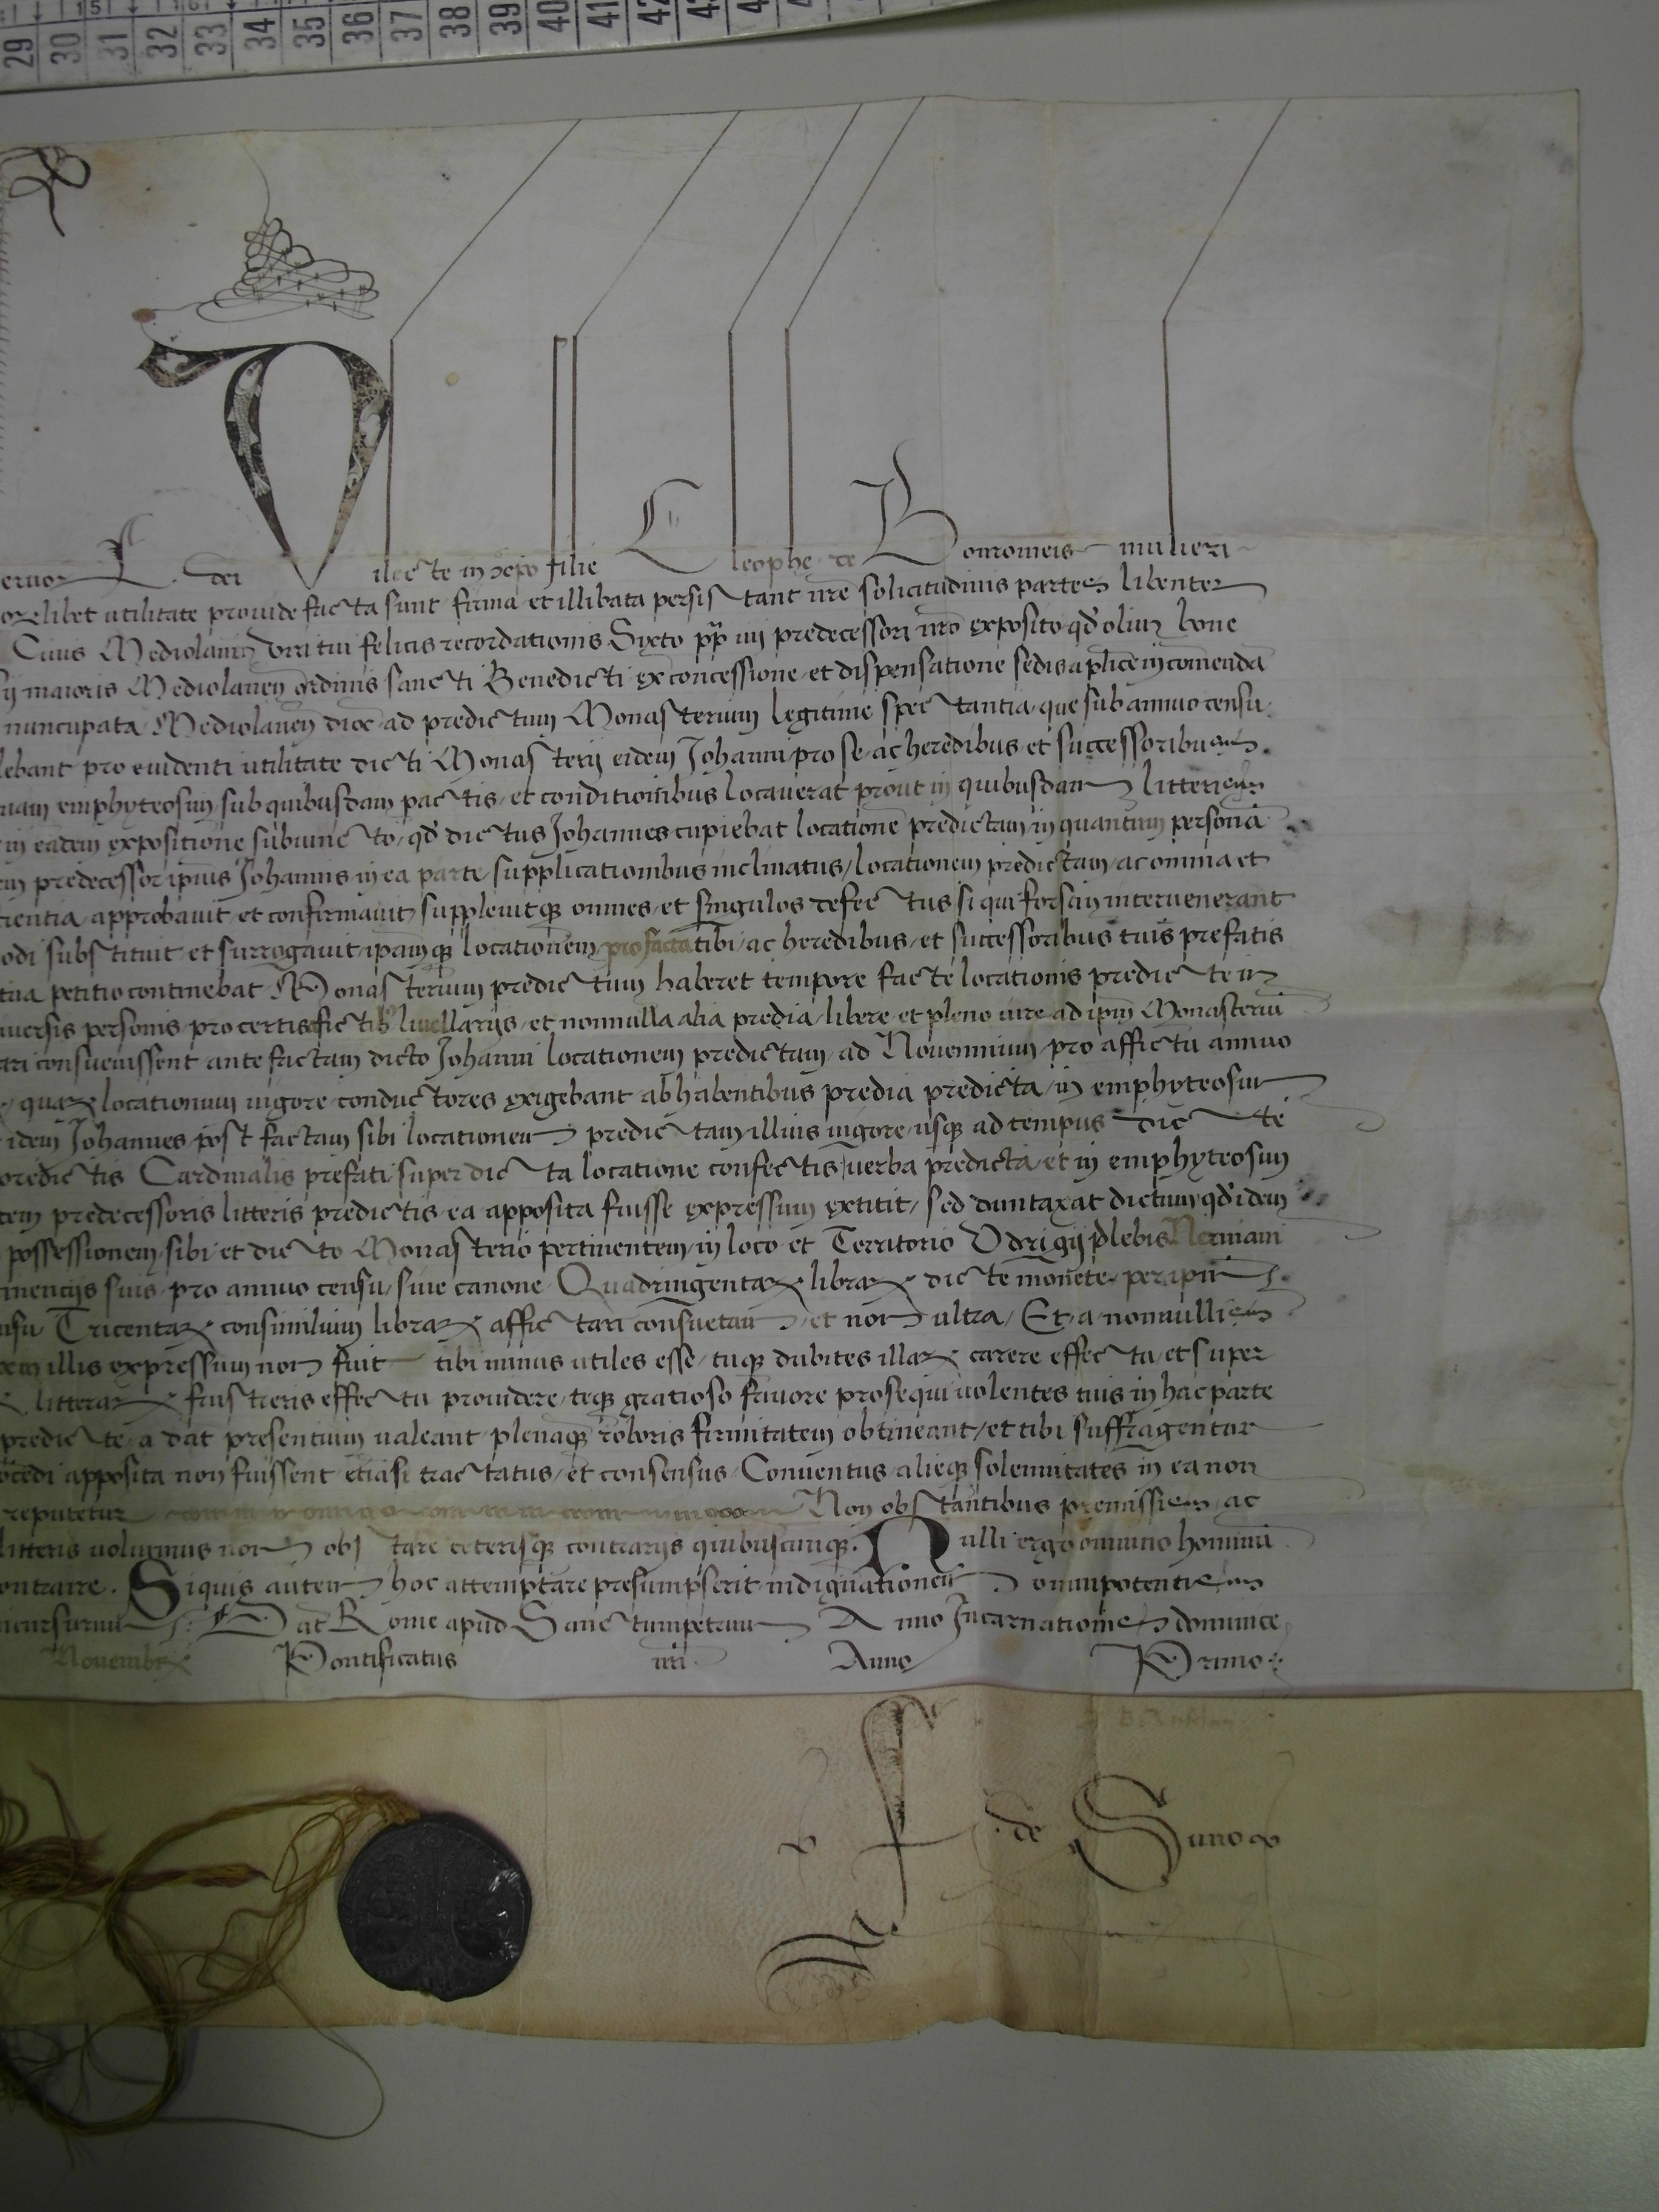 29 30 31 32 33 34 35 36 37 38 39 40 41 42
ervoꝝ dei Dilecte in xp̄o filie Cleophe de Bonromeis mulieri
libet utilitate provide facta sunt firma et illibata persistant nr̄e solicitudinis partes libenter
Civis Mediolanen̄ viri tui felicis recordationis Sixto pp̄ iiij predecessori nr̄o exposito qd̓ olim bone
ij maioris Mediolanen̄ ordinis sancti Benedicti ex concessione et dispensatione sedis ap̄lice in comendā
nuncupata Mediolanen̄ dioc̄ ad predictum Monasterium legitime spectantia que sub annuo censu
lebant pro evidenti utilitate dicti Monasterij eidem Johanni pro se ac heredibus et successoribus
emphyteosim sub quibusdam pactis et conditionibus locaverat prout in quibusdam litteris
in eadem expositione subiuncto qd̓ dictus Johannes cupiebat locatione predictam in quantum personā
em predecessor ipsius Johannis in ea parte supplicationibus inclinatus locationem predictam ac omnia et
cientia approbavit et confirmavit supplevitqꝫ omnes et singulos defectus si qui forsan intervenerant
odi substituit et surrogavit ipamqꝫ locationem pro facta tibi ac heredibus et successoribus tuis prefatis
tua petitio continebat Monasterium predictum haberet tempore facte locationis predicte in
iversis personis pro certis fictibꝫ livellarijs et nonnulla alia predia libere et pleno iure ad ipm̄ Monasteriū
ari consuevissent ante factam dicto Johanni locationem predictam ad Novennium pro affictu annuo
quaꝝ locationum vigore conductores exigebant ab habentibus predia predicta in emphyteosim
idem Johannes post factam sibi locationem predictam illius vigore usqꝫ ad tempus dicte
predictis Cardinalis prefati super dicta locatione confectis verba predicta et in emphyteosim
tem predecessoris litteris predictis ea apposita fuisse expressum extitit sed duntaxat dictum qd̓ idem
possessionem sibi et dicto Monasterio pertinentem in loco et Territorio Vdrigij plebis Nerviani
inencijs suis pro annuo censu sive canone Quadringentaꝝ libraꝝ dicte monete per ipm̄
nsu Tricentaꝝ consimilium libraꝝ affictari consuetam et non ultra Et a nonnullis
em illis expressum non fuit tibi minus utiles esse tuqꝫ dubites illaꝝ carere effectu et super
litteraꝝ frustreris effectu providere teqꝫ gratioso favore prosequi volentes tuis in hac parte
predicte a dat̄ presentium valeant plenāqꝫ roboris firmitatem obtineant et tibi suffragentur
cedi apposita non fuissent etiāsi tractatus et consensus Conventus alieqꝫ solennitates in ea non
reputetur Non obstantibus premissis ac
litteris volumus non obstare ceterisqꝫ contrarijs quibuscunqꝫ. Nulli ergo omnino hominū
ontraire. Siquis autem hoc attemptare presumpserit indignationem omnipotentis
ncursurum Dat̄ Rome apud Sanctumpetrum Anno Incarnationis dominice
Novembr̄ Pontificatus nr̄i Anno Primo
de Sinno